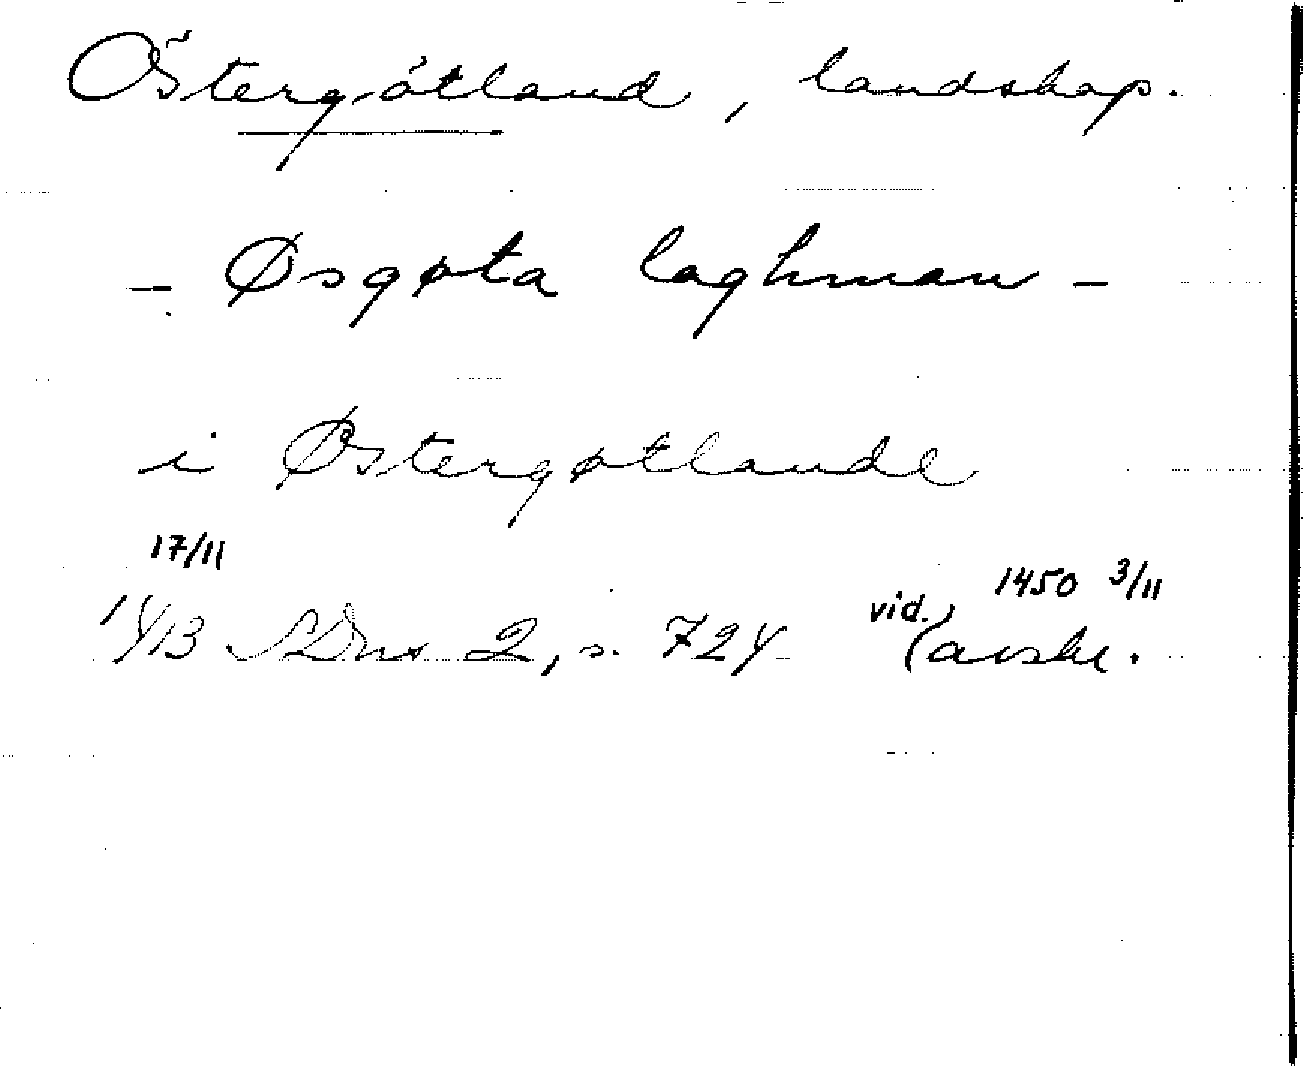 Östergötland, landskap.
- Øsgøta laghman -
i Østergøtlandl
17/11
1413 SDns 2, s. 724 vid. (avskr. 1450 3/11